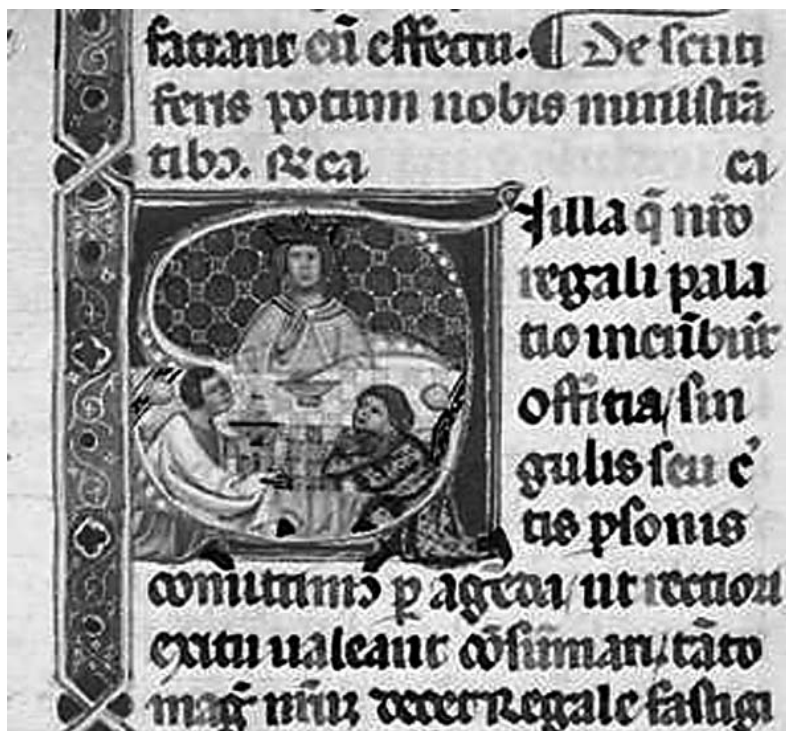 faciant cũ effectu. ¶ De scuti
feris potum nobis ministrã
tibꝰ. Rca ca
Silla q̃ nrõ
regali pala
tio incũbũt
offitia / sin
gulis seu c̾
tis psonis
comittimꝰ ꝑ agẽda / ut rectiori
exitu ualeant cõsũmari, tãto
mag̃ nrũꝫ decet Regale fastigi